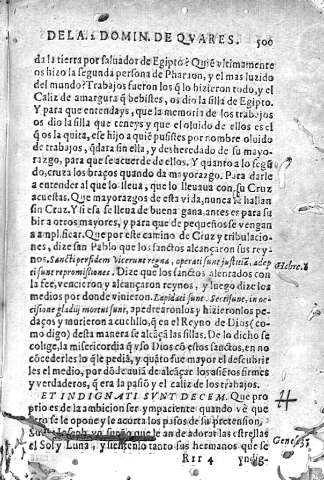 DE LA .2. DOMIN. DE QVARES. 500
da la tierra por saluador de Egipto? Quiẽ vltimamente
os hizo la segunda persona de Pharaon, y el mas luzido
del mundo? Trabajos fueron los q̃ lo hizieron todo, y el
Caliz de amargura q̃ bebistes, os dio la silla de Egipto.
Y para que entendays, que la memoria de los trabajos
os dio la silla que teneys y que el oluido de ellos es el
q̃ os la quita, ese hijo a quiẽ pusistes por nombre oluido
de trabajos, q̃dara sin ella, y desheredado de su mayo-
razgo, para que se acuerde de ellos. Y quanto a lo segũ
do, cruza los braços quando da mayorazgo. Para darle
a entender al que lo lleua, que lo lleuaua con su Cruz
acuestas. Que mayorazgos de esta vida, nunca se hallan
sin Cruz. Y si esa se lleua de buena gana, antes es para su
bir a otros mayores, y para que de pequeños se vengan
a amplificar. Que por este camino de Cruz y tribulacio-
nes, dize san Pablo que los sanctos alcançaron sus rey-
nos. Sancti per fidem vicerunt regna, operati sunt justitiã, adep
ti sunt repromisiones. Dize que los sanctos alentados con
la fee, vencieron y alcançaron reynos, y luego dize los
medios por donde vinieron. Lapidati sunt. Secti sunt, in oc-
cisione gladij mortui sunt, apedrearonlos y hizieronlos pe-
daços y murieron a cuchillo, q̃ en el Reyno de Dios (co-
mo digo) desta manera se alcãçã las sillas. De lo dicho se
colige, la misericordia q̃ vso Dios cõ estos sanctos, en no
cõcederles lo q̃ le pediã, y quãto fue mayor el descubrir
les el medio, por dõde auiã de alcãçar los asiẽtos firmes
y verdaderos, q̃ era la pasiõ y el caliz de los trabajos.
ET INDIGNATI SVNT DECEM. Que pro
prio es de la ambicion ser ympaciente quando vè que
se le opone y le acorta los pasos de su pretension.
Joseph vn sueño que le an de adorar las estrellas
el Sol y Luna, y sientenlo tanto sus hermanos que se
Rrr 4 yndig-
Hebre.
Genes. 37